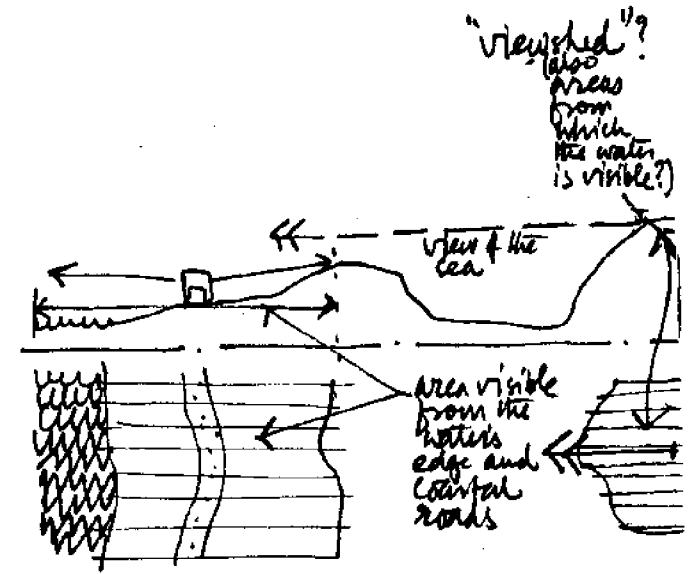 "viewshed"?
(also
areas
from
which
the water
is visible?)
view of the
sea
area visible
from the
water's
edge and
coastal
roads